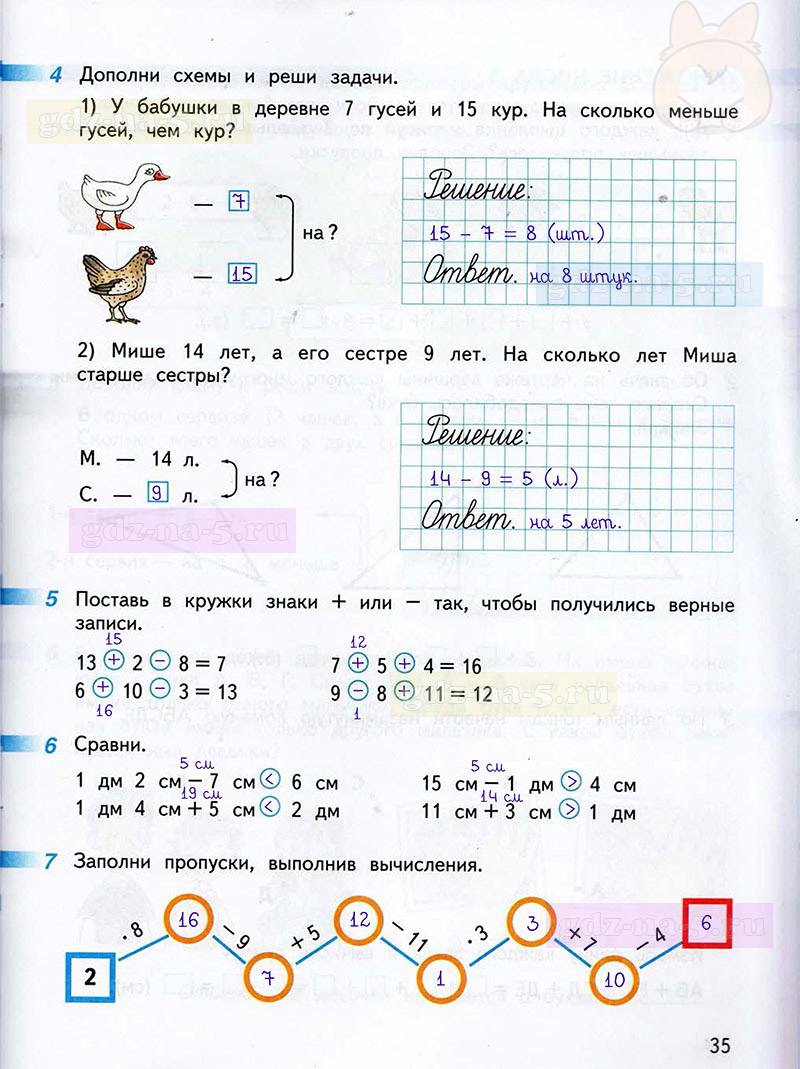 4 Дополни схемы и реши задачи.
1) У бабушки в деревне 7 гусей и 15 кур. На сколько меньше
гусей, чем кур?
gdz-na-5.ru
— 7
на ?
— 15
Решение:
15 - 7 = 8 (шт.)
Ответ. на 8 штук.
gdz-na-5.ru
2) Мише 14 лет, а его сестре 9 лет. На сколько лет Миша
старше сестры?
М. — 14 л.
на ?
С. — 9 л.
Решение:
14 - 9 = 5 (л.)
Ответ. на 5 лет.
gdz-na-5.ru
5 Поставь в кружки знаки + или — так, чтобы получились верные
записи.
15
13 + 2 − 8 = 7
6 + 10 − 3 = 13
16
12
7 + 5 + 4 = 16
9 − 8 + 11 = 12
1
gdz-na-5.ru
6 Сравни.
5 см
1 дм 2 см − 7 см < 6 см
19 см
1 дм 4 см + 5 см < 2 дм
5 см
15 см − 1 дм > 4 см
14 см
11 см + 3 см > 1 дм
7 Заполни пропуски, выполнив вычисления.
2 · 8 16 − 9 7 + 5 12 − 11 1 · 3 3 + 7 10 − 4 6
gdz-na-5.ru
35